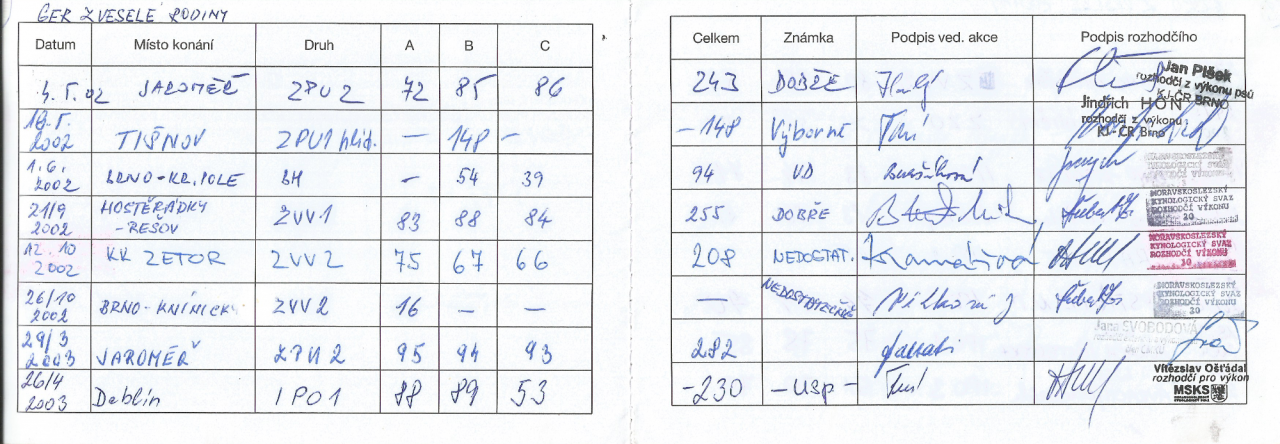 GER Z VESELÉ RODINY
Datum Místo konání Druh A B C
4. 5. 02 JAROMĚŘ ZPU 2 72 85 86
18. 5. 2002 TIŠNOV ZPU1 hlíd. — 148 —
1. 6. 2002 BRNO-KR. POLE BH — 54 39
21/9 2002 HOSTĚRÁDKY -REŠOV ZVV1 83 88 84
12. 10 2002 KK ZETOR ZVV 2 75 67 66
26/10 2002 BRNO-KNÍNIČKY ZVV 2 16 — —
29/3 2003 JAROMĚŘ ZPU 2 95 94 93
26/4 2003 Deblín IPO1 88 89 53
Celkem Známka Podpis ved. akce Podpis rozhodčího
243 DOBŘE
Jan Plšek
rozhodčí z výkonu psů
KJ-ČR BRNO
-148 Výborně
Jindřich HON
rozhodčí z výkonu
KJ-ČR Brno
94 VD
255 DOBŘE
MORAVSKOSLEZSKÝ
KYNOLOGICKÝ SVAZ
ROZHODČÍ VÝKONU
20
208 NEDOSTAT.
MORAVSKOSLEZSKÝ
KYNOLOGICKÝ SVAZ
ROZHODČÍ VÝKONU
10
— NEDOSTATEČNĚ
MORAVSKOSLEZSKÝ
KYNOLOGICKÝ SVAZ
ROZHODČÍ VÝKONU
20
282
Jana SVOBODOVÁ
-230 -USP-
Vítězslav Ošťádal
rozhodčí pro výkon
MSKS